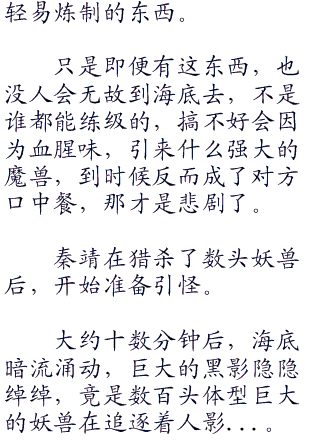 轻易炼制的东西。
只是即便有这东西，也
没人会无故到海底去，不是
谁都能练级的，搞不好会因
为血腥味，引来什么强大的
魔兽，到时候反而成了对方
口中餐，那才是悲剧了。
秦靖在猎杀了数头妖兽
后，开始准备引怪。
大约十数分钟后，海底
暗流涌动，巨大的黑影隐隐
绰绰，竟是数百头体型巨大
的妖兽在追逐着人影...。